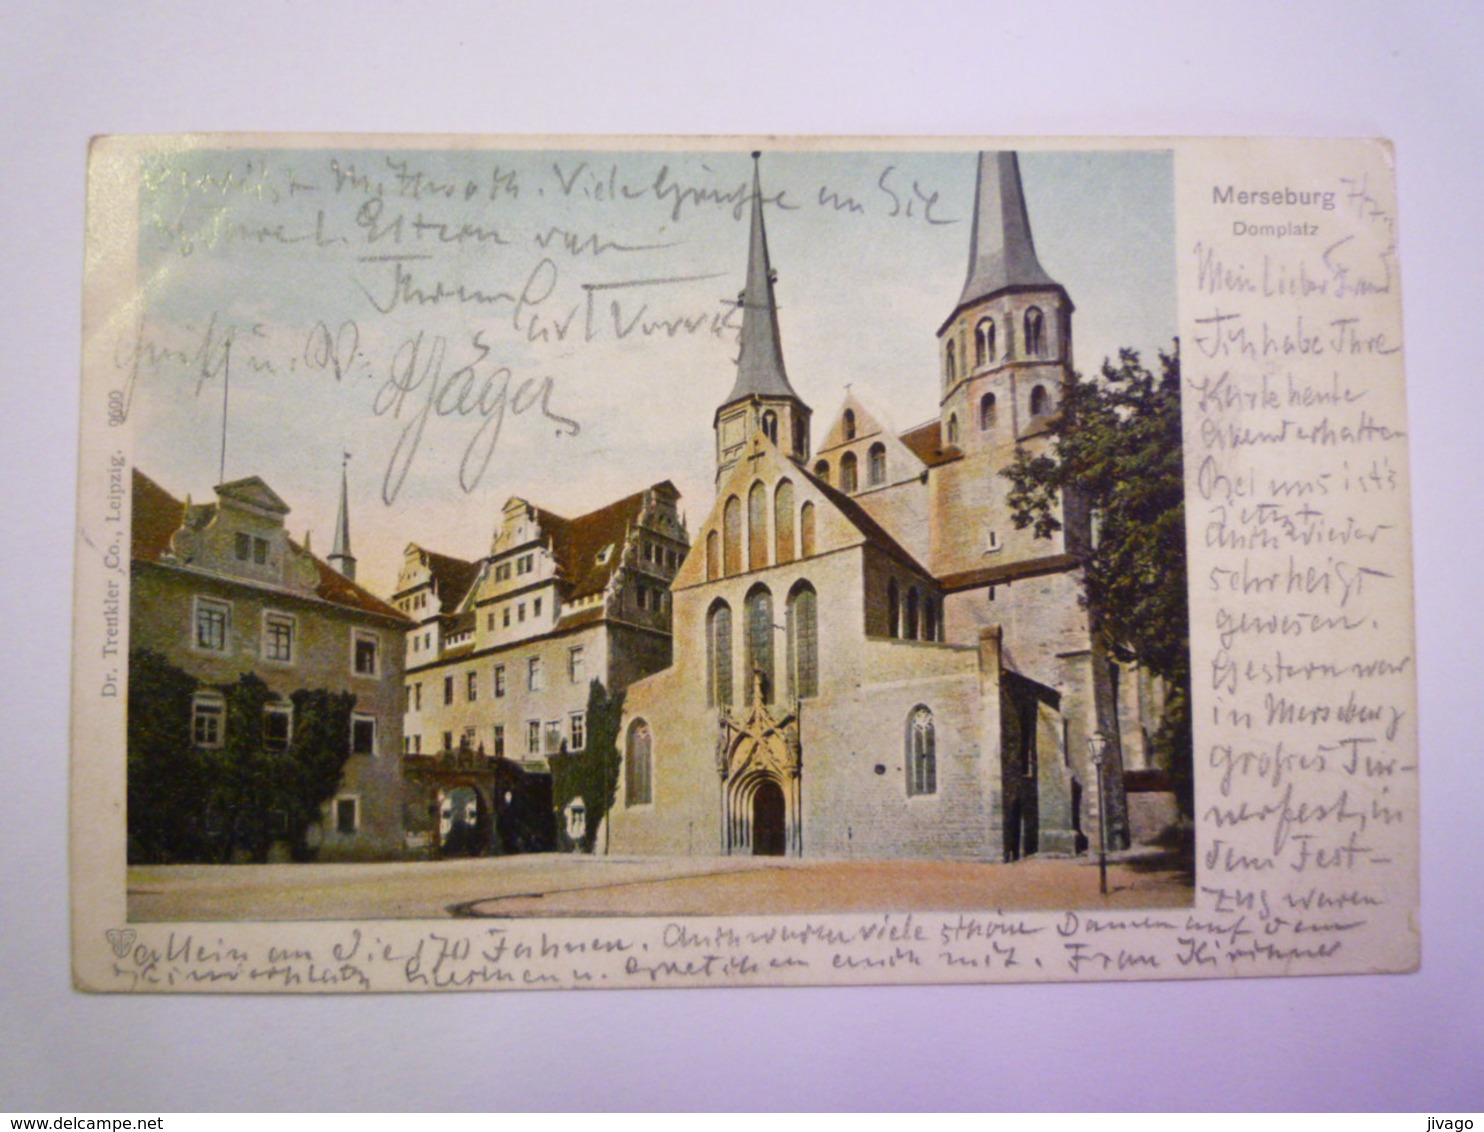 Merseburg
Domplatz
Mein lieber Freund
Ich habe Ihre
Karte heute
Abend erhalten
Bei uns ist's
jetzt
Auch wieder
sehr heiß
gewesen.
Gestern war
in Merseburg
großes Tur-
nerfest, in
dem Fest-
zug waren
allein an die 170 Fahnen. Auch waren viele schöne Damen auf dem
Hermen u. Gretchen auch mit. Frau Kirchner
Mittwoch. Viele Grüße an Sie
l. Eltern von
Ihrem
Gruß u.
Jäger
Dr. Trenkler Co., Leipzig. 9600
www.delcampe.net
jivago